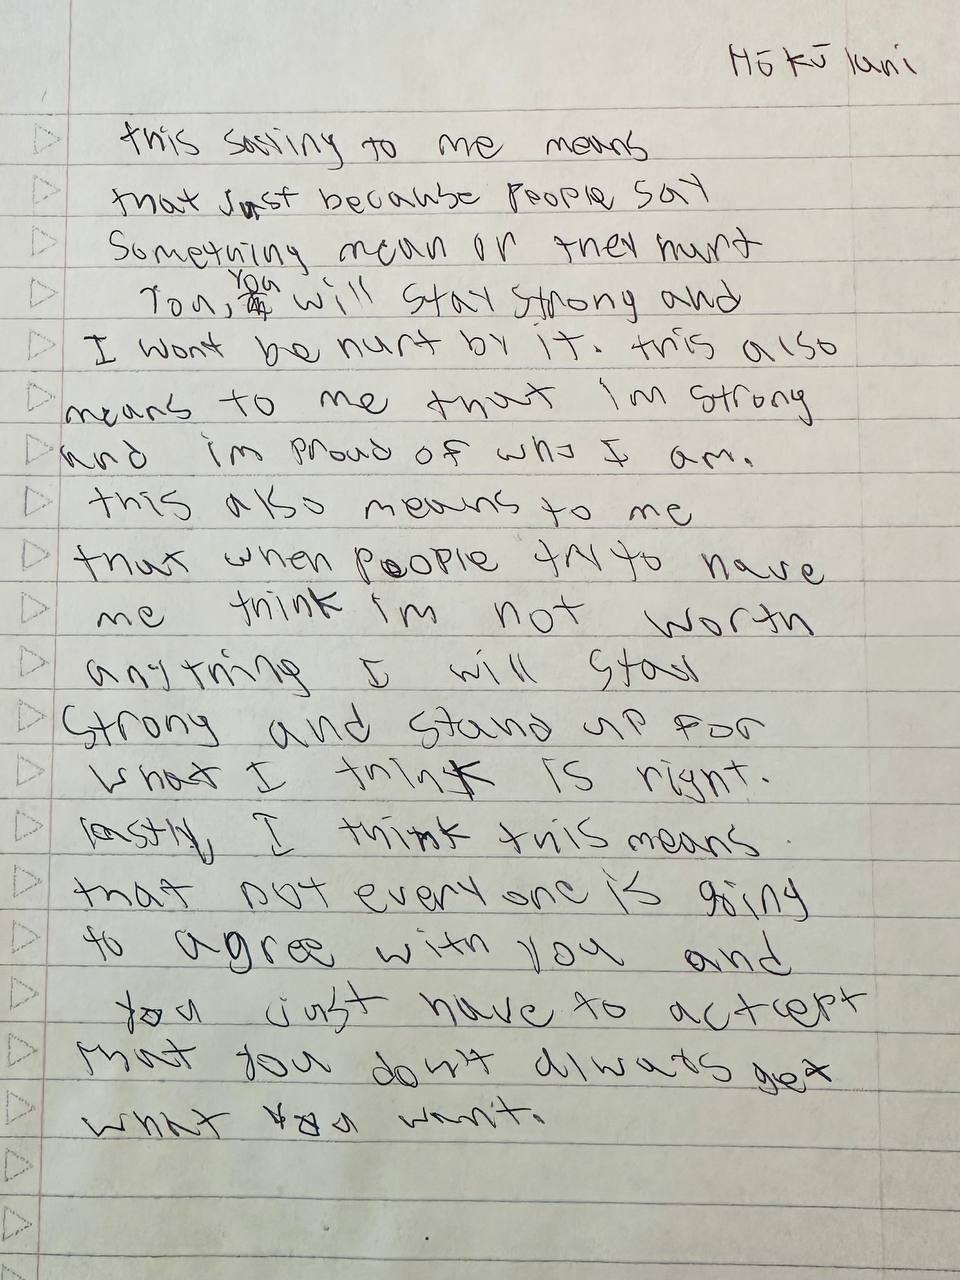 Hōkūlani
this saying to me means
that Just because people say
Something mean or they hurt
You, You will stay strong and
I wont be hurt by it. this also
means to me that im strong
and im proud of who I am.
this also means to me
that when people try to have
me think im not worth
anything I will stay
strong and stand up for
what I think is right.
lastly, I think this means
that not every one is going
to agree with you and
you just have to actcept
that you don't always get
what you want.